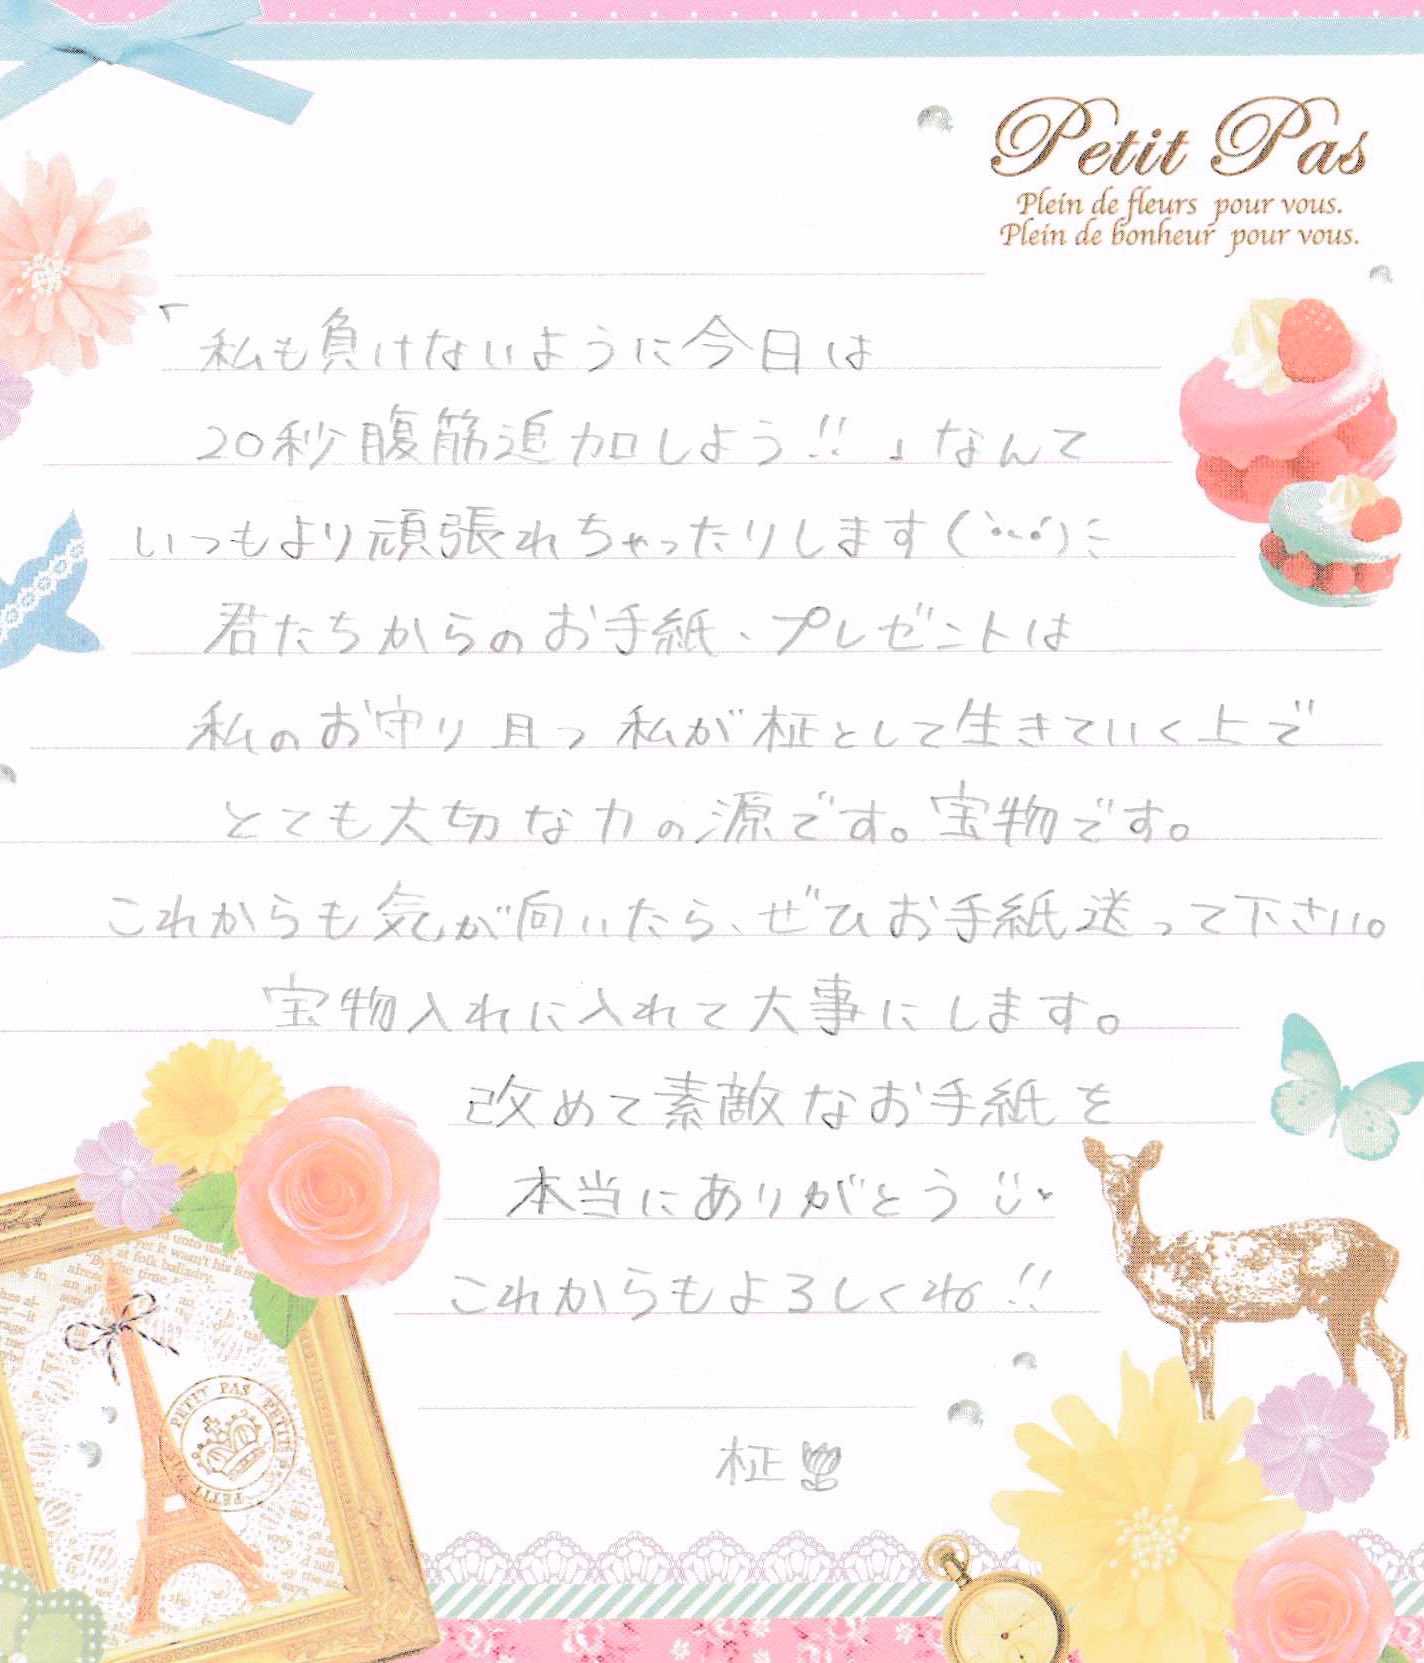 Petit Pas
Plein de fleurs pour vous.
Plein de bonheur pour vous.
「私も負けないように今日は
20秒腹筋追加しよう!!」なんて
いつもより頑張れちゃったりします(`•ᴗ•´)ﾆ
君たちからのお手紙、プレゼントは
私のお守り且つ私が柾として生きていく上で
とても大切な力の源です。宝物です。
これからも気が向いたら、ぜひお手紙送って下さい。
宝物入れに入れて大事にします。
改めて素敵なお手紙を
本当にありがとう
これからもよろしくね!!
柾
PETIT PAS PETIT